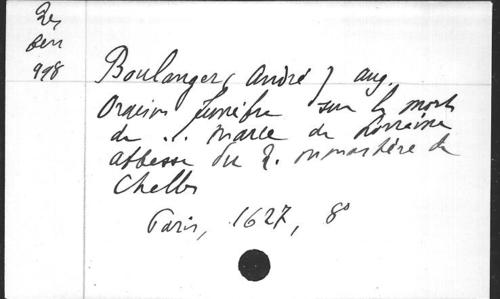 Res
Ben
998
Boulanger (André) aug.
Oraison funèbre sur la mort
de ... Marie de Lorraine
abbesse du R. monastère de
Chelles
Paris, 1627, 8°